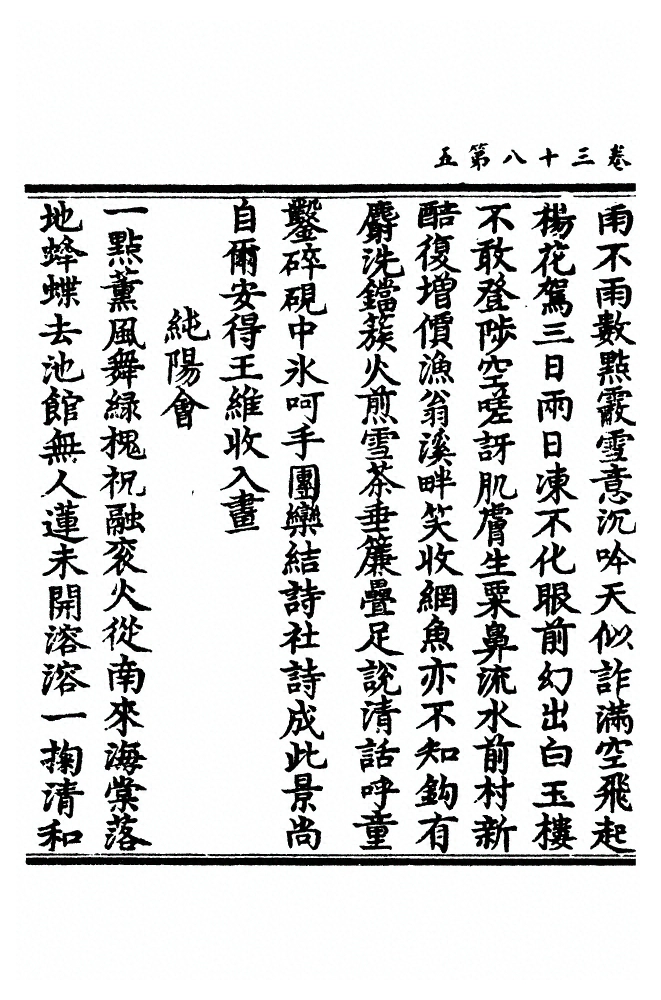 卷三十八第五
雨不雨數點霰雪意沉吟天似詐滿空飛起
楊花駕三日兩日凍不化眼前幻出白玉樓
不敢登陟空嗟訝肌膚生粟鼻流水前村新
酷復增價漁翁溪畔笑收網魚亦不知鈎有
麝洗鐺蔟火煎雪茶垂簾疊足說清話呼童
鑿碎硯中氷呵手團欒結詩社詩成此景尚
自爾安得王維收入畫
純陽會
一點薰風舞緑槐祝融衮火從南來海棠落
地蜂蝶去池館無人蓮未開溶溶一掬清和